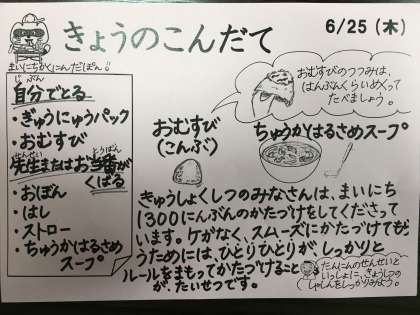 きょうのこんだて
6/25 (木)
まいにちかくにんだぽん!
じぶん
自分でとる
・ぎゅうにゅうパック
・おむすび
せんせい とうばん
先生またはお当番が
くばる
・おぼん
・はし
・ストロー
・ちゅうかはるさめ
スープ
おむすびのつつみは、
はんぶんくらいめくって
たべましょう。
おむすび
(こんぶ)
ちゅうかはるさめスープ
きゅうしょくしつのみなさんは、まいにち
1300にんぶんのかたづけをしてくださって
います。ケガなく、スムーズにかたづけてもら
うためには、ひとりひとりが、しっかりと
ルールをまもってかたづけること
が、たいせつです。
たんにんのせんせいと
いっしょに、きょうしつの
しゃしんをしっかりみよう。